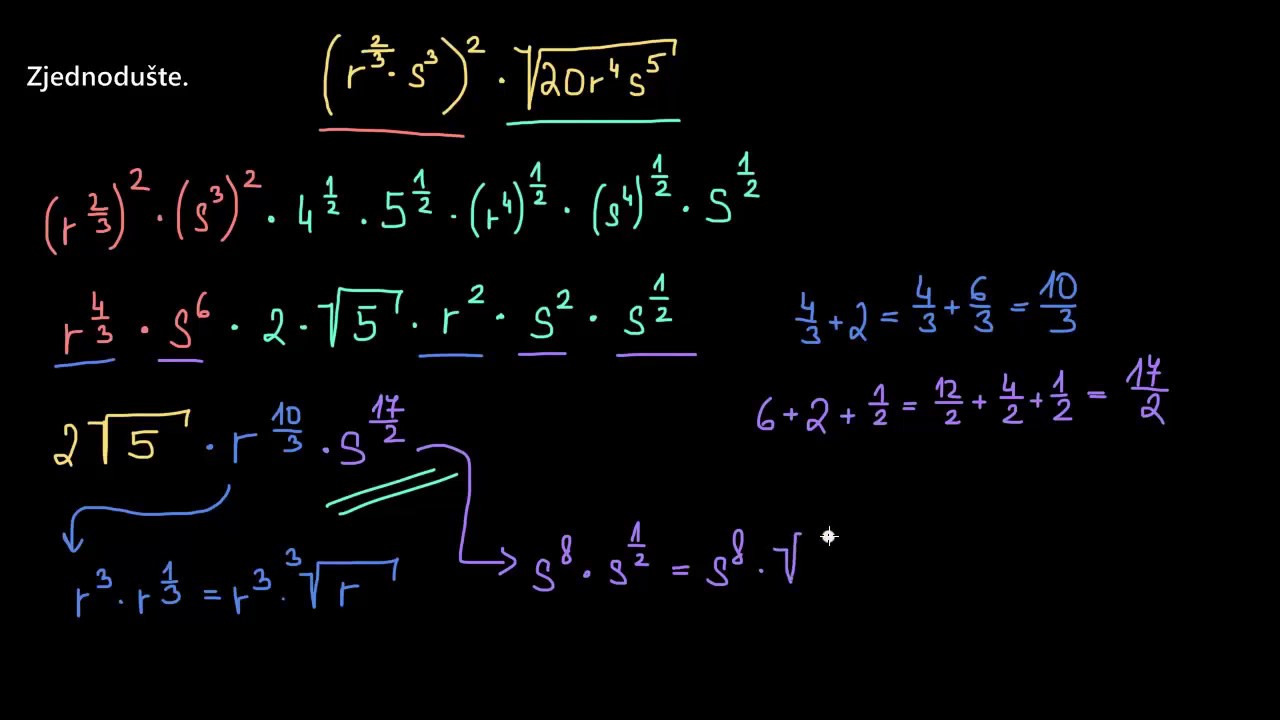 Zjednodušte.
(r^{2/3} · s^3)^2 · √(20r^4 s^5)
(r^{2/3})^2 · (s^3)^2 · 4^{1/2} · 5^{1/2} · (r^4)^{1/2} · (s^4)^{1/2} · s^{1/2}
r^{4/3} · s^6 · 2 · √5 · r^2 · s^2 · s^{1/2}
4/3 + 2 = 4/3 + 6/3 = 10/3
6 + 2 + 1/2 = 12/2 + 4/2 + 1/2 = 17/2
2√5 · r^{10/3} · s^{17/2}
r^3 · r^{1/3} = r^3 · ∛r
s^8 · s^{1/2} = s^8 · √